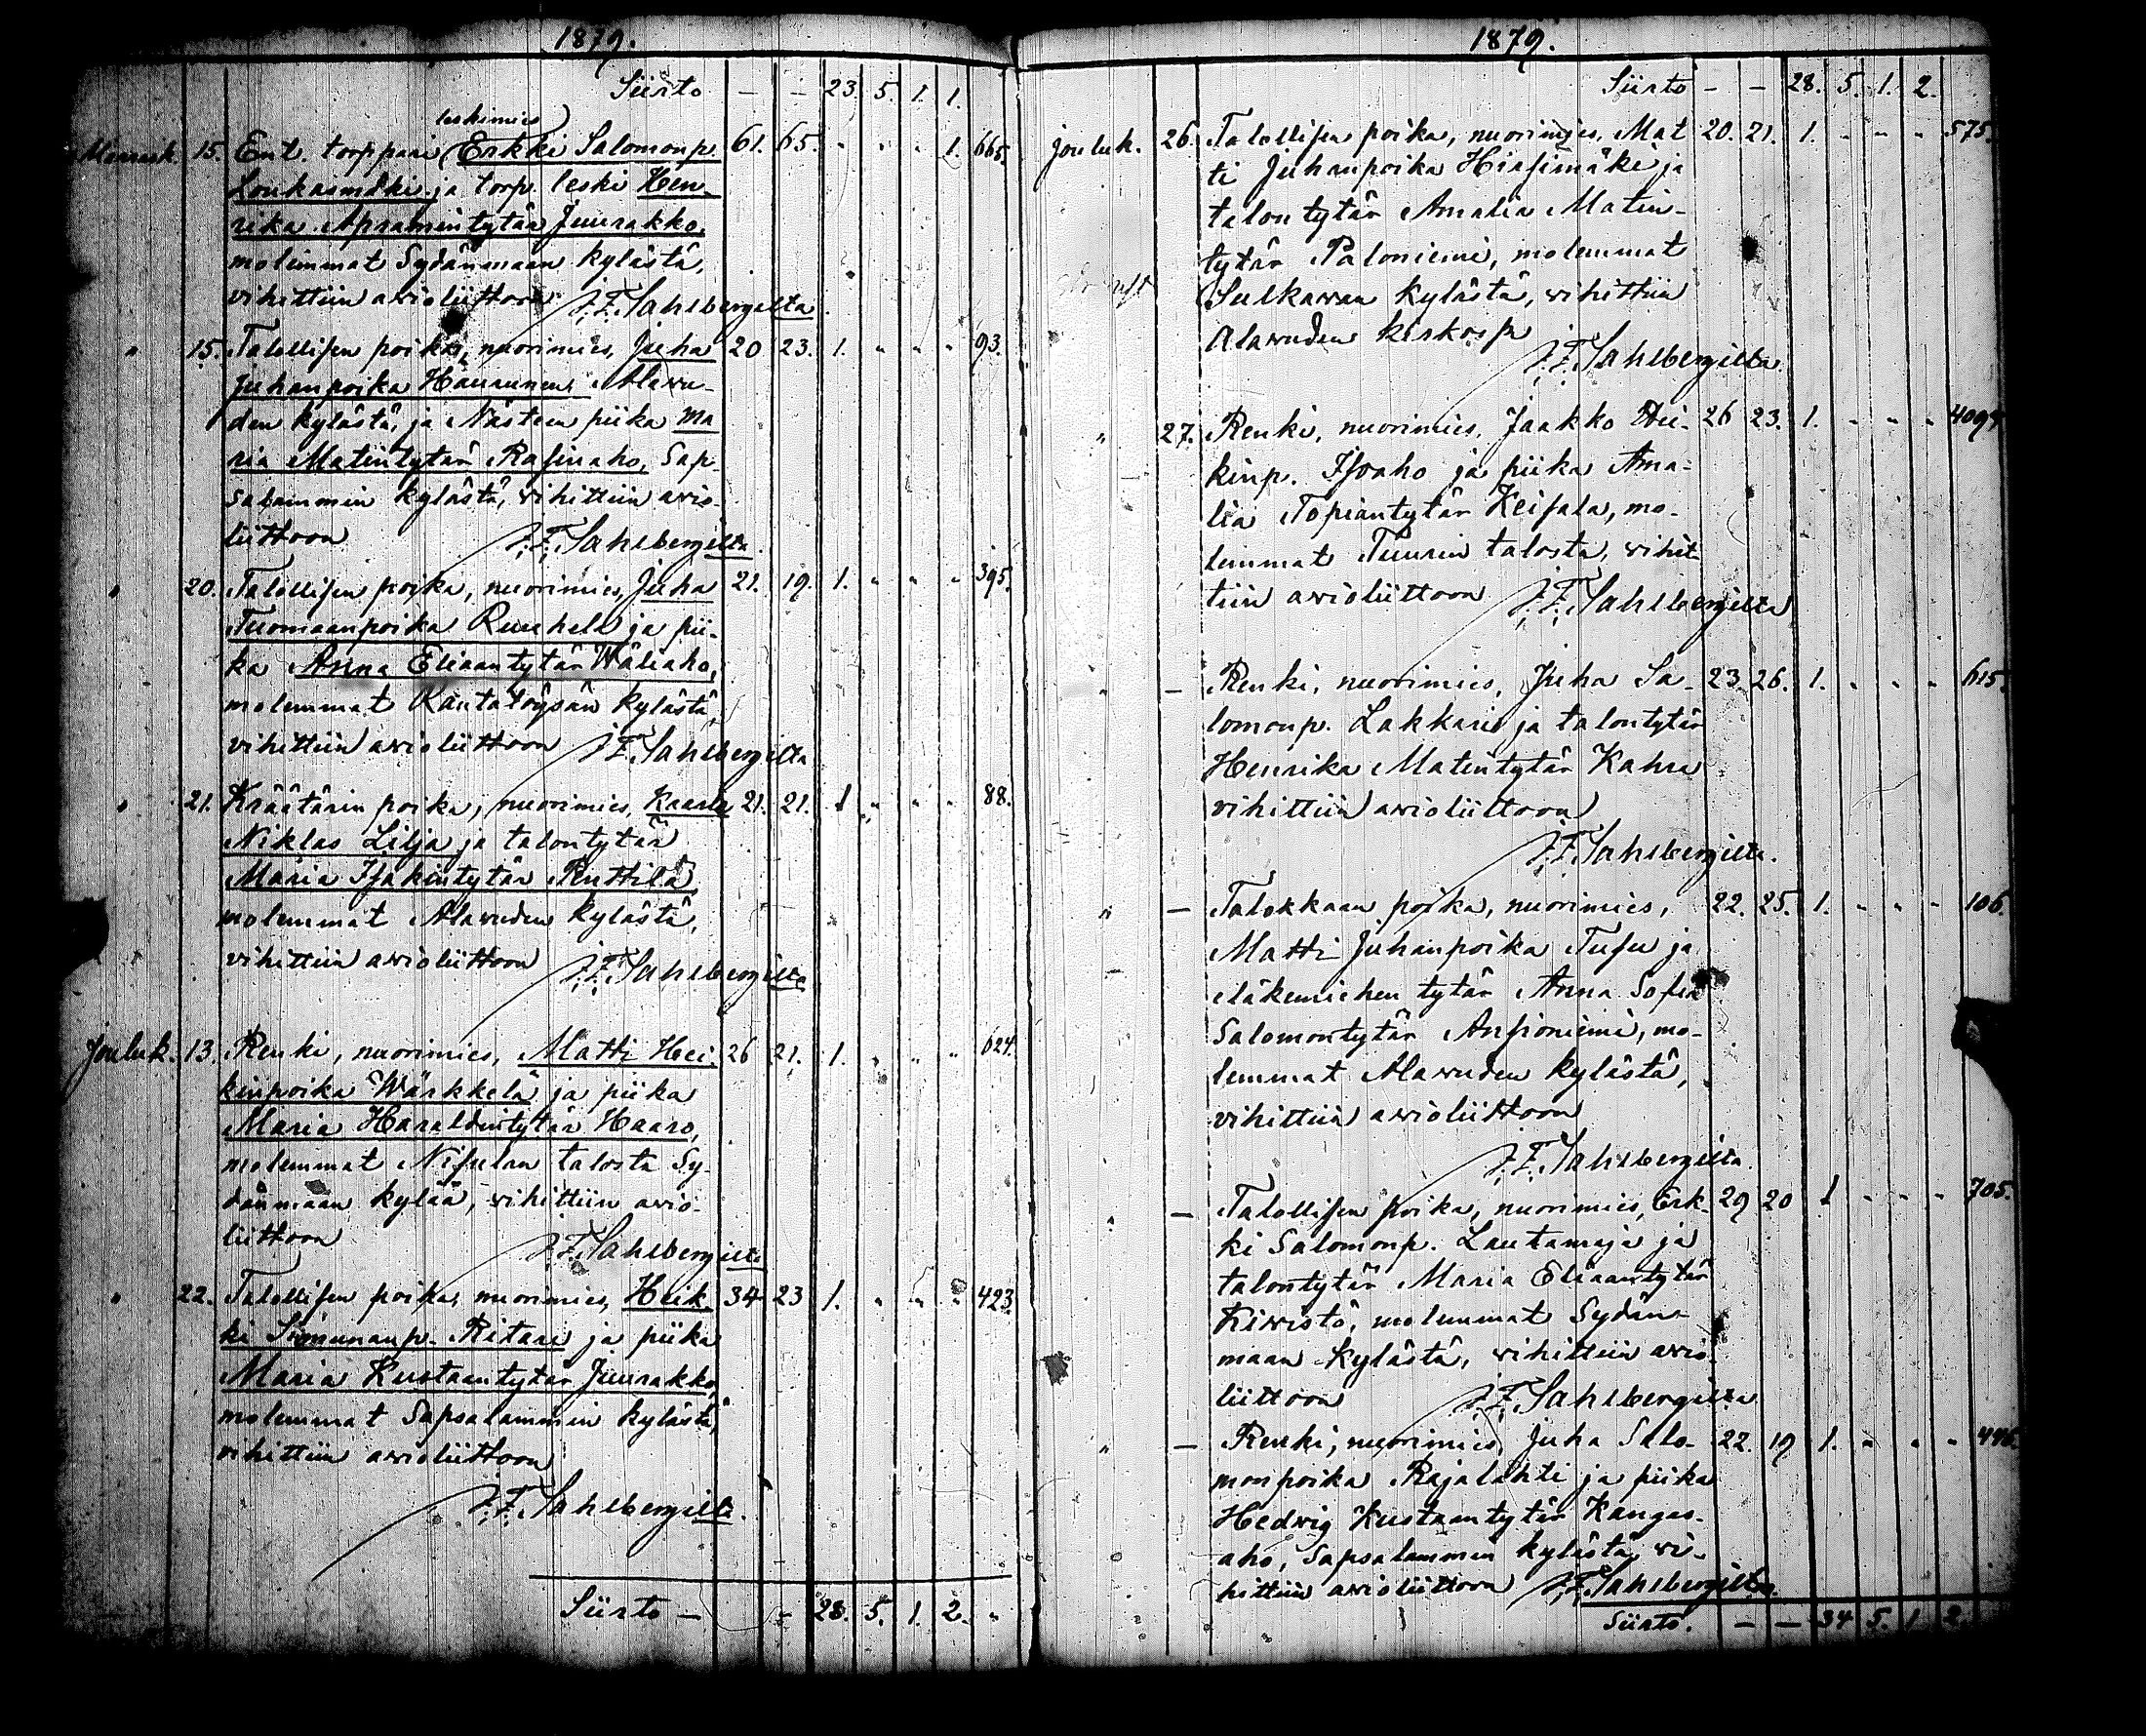 1879.
Siirto — — 23. 5. 1. 1.
leskimies
Marrask. 15. Ent. torppari Erkki Salomonp. 61. 65. " " " 1. 665.
Loukasmäki ja torp. leski Hen-
rika Apramintytär Juurakko,
molemmat Sydänmaan kylästä,
vihittiin avioliittoon J. F. Sahlbergilta.
" 15. Talollisen poika, nuorimies, Juha 20 23. 1. " " " 93.
Juhanpoika Hänninen Alavu-
den kylästä, ja Nästein piika Ma
ria Matintytär Rasinaho, Sap-
salammin kylästä, vihittiin avio-
liittoon J. F. Sahlbergilta.
" 20. Talollisen poika, nuorimies, Juha 21. 19. 1. " " " 395.
Tuomaanpoika Ruuhela ja pii-
ka Anna Eliaantytär Wäliaho,
molemmat Rantatöysän kylästä,
vihittiin avioliittoon J. F. Sahlbergilta
" 21. Kräätärin poika, nuorimies, Kaarle 21. 21. 1 " " " 88.
Niklas Lilja ja talontytär
Maria Isakintytär Ruttila
molemmat Alavuden kylästä,
vihittiin avioliittoon J. F. Sahlbergilta
Jouluk. 13. Renki, nuorimies, Matti Hei- 26 21. 1. " " " 624.
kinpoika Wärkkelä ja piika
Maria Haraldintytär Haaro,
molemmat Nisulan talosta Sy-
dänmaan kylää, vihittiin avio-
liittoon J. F. Sahlbergilta
" 22. Talollisen poika, nuorimies, Heik- 34 23 1. " " " 423.
ki Simunanp. Ritari ja piika
Maria Kustaantytär Juurakko,
molemmat Sapsalammin kylästä,
vihittiin avioliittoon
J. F. Sahlbergilta.
Siirto — — 28. 5. 1. 2. "
1879.
Siirto — — 28. 5. 1. 2.
Jouluk. 26. Talollisen poika, nuorimies, Mat 20. 21. 1. " " " 575.
ti Juhanpoika Hirsimäki ja
talontytär Amalia Matin-
tytär Paloniemi, molemmat
Sulkavan kylästä, vihittiin
Alavuden kirkossa
J. F. Sahlbergilta.
" 27. Renki, nuorimies, Jaakko Hei- 26 23. 1. " " "
kinp. Isoaho ja piika Ama-
lia Topiantytär Keisala, mo-
lemmat Tuurin talosta, vihit-
tiin avioliittoon J. F. Sahlbergilta
" — Renki, nuorimies, Juha Sa- 23. 26. 1. " " " 615.
lomonp. Lakkari ja talontytär
Henrika Matintytär Kahra
vihittiin avioliittoon
J. F. Sahlbergilta.
" — Talokkaan poika, nuorimies, 22. 25. 1. " " " 106.
Matti Juhanpoika Tusu ja
eläkemiehen tytär Anna Sofia
Salomontytär Ansioniemi, mo-
lemmat Alavuden kylästä,
vihittiin avioliittoon
J. F. Sahlbergilta.
" — Talollisen poika, nuorimies, Erk- 29 20 1 " " " 705.
ki Salomonp. Lautamaja ja
talontytär Maria Eliaantytär
Kivistö, molemmat Sydän-
maan kylästä, vihittiin avio-
liittoon J. F. Sahlbergilta
" — Renki, nuorimies, Juha Salo- 22. 19 1. " " " 446.
monpoika Rajalahti ja piika
Hedvig Kustaantytär Kangas-
aho, Sapsalammen kylästä, vi-
hittiin avioliittoon J. F. Sahlbergilta.
Siirto. — — 34 5. 1 2.